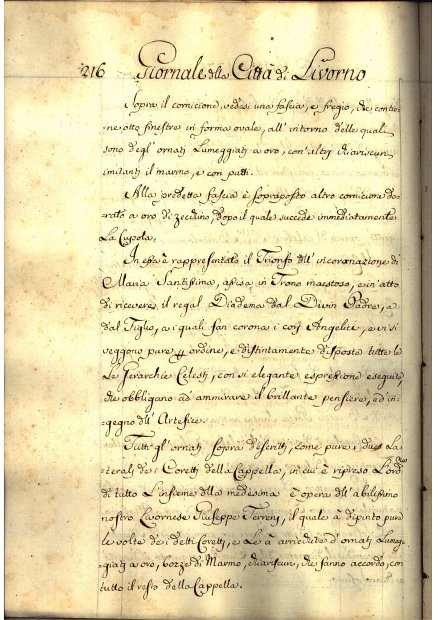 216 Giornale della Città di Livorno
Sopra il cornicione vedesi una fascia, e fregio, che contie-
ne otto finestre in forma ovale, all' intorno delle quali
sono degl' ornati Lumeggiati a oro, con altri chiariscuri
imitanti il marmo, e con putti.
Alla predetta fascia è sopraposto altro cornicione do-
rato a oro di zecchino, dopo il quale succede immediatamente
La Cupola.
In essa è rappresentato il Trionfo dell' incoronazione di
Maria Santissima, assisa in Trono maestoso, e in atto
di ricevere il regal Diadema dal Divin Padre, e
dal Figlio, a i quali fan corona i cori Angelici, e in si
veggono pure ordine, e distintamente disposte tutte le
Le Gerarchie Celesti, con si elegante espressione eseguite,
che obbligano ad ammirare il brillante pensiere, ed in-
gegno dell' Artefice.
Tutti gl' ornati sopra descritti, come pure i due La-
terali de i Coretti della Cappella, in cui è ripreso L'ord.ne
di tutto L'insieme della medesima è opera dell' abilissimo
nostro Livornese Giuseppe Terreni, il quale à dipinto pure
le volte de i detti Coretti, e Le à arricchite d'ornati Lumeg-
giati a oro, bozze di Marmo, chiariscuri, che fanno accordo, con
tutto il resto della Cappella.